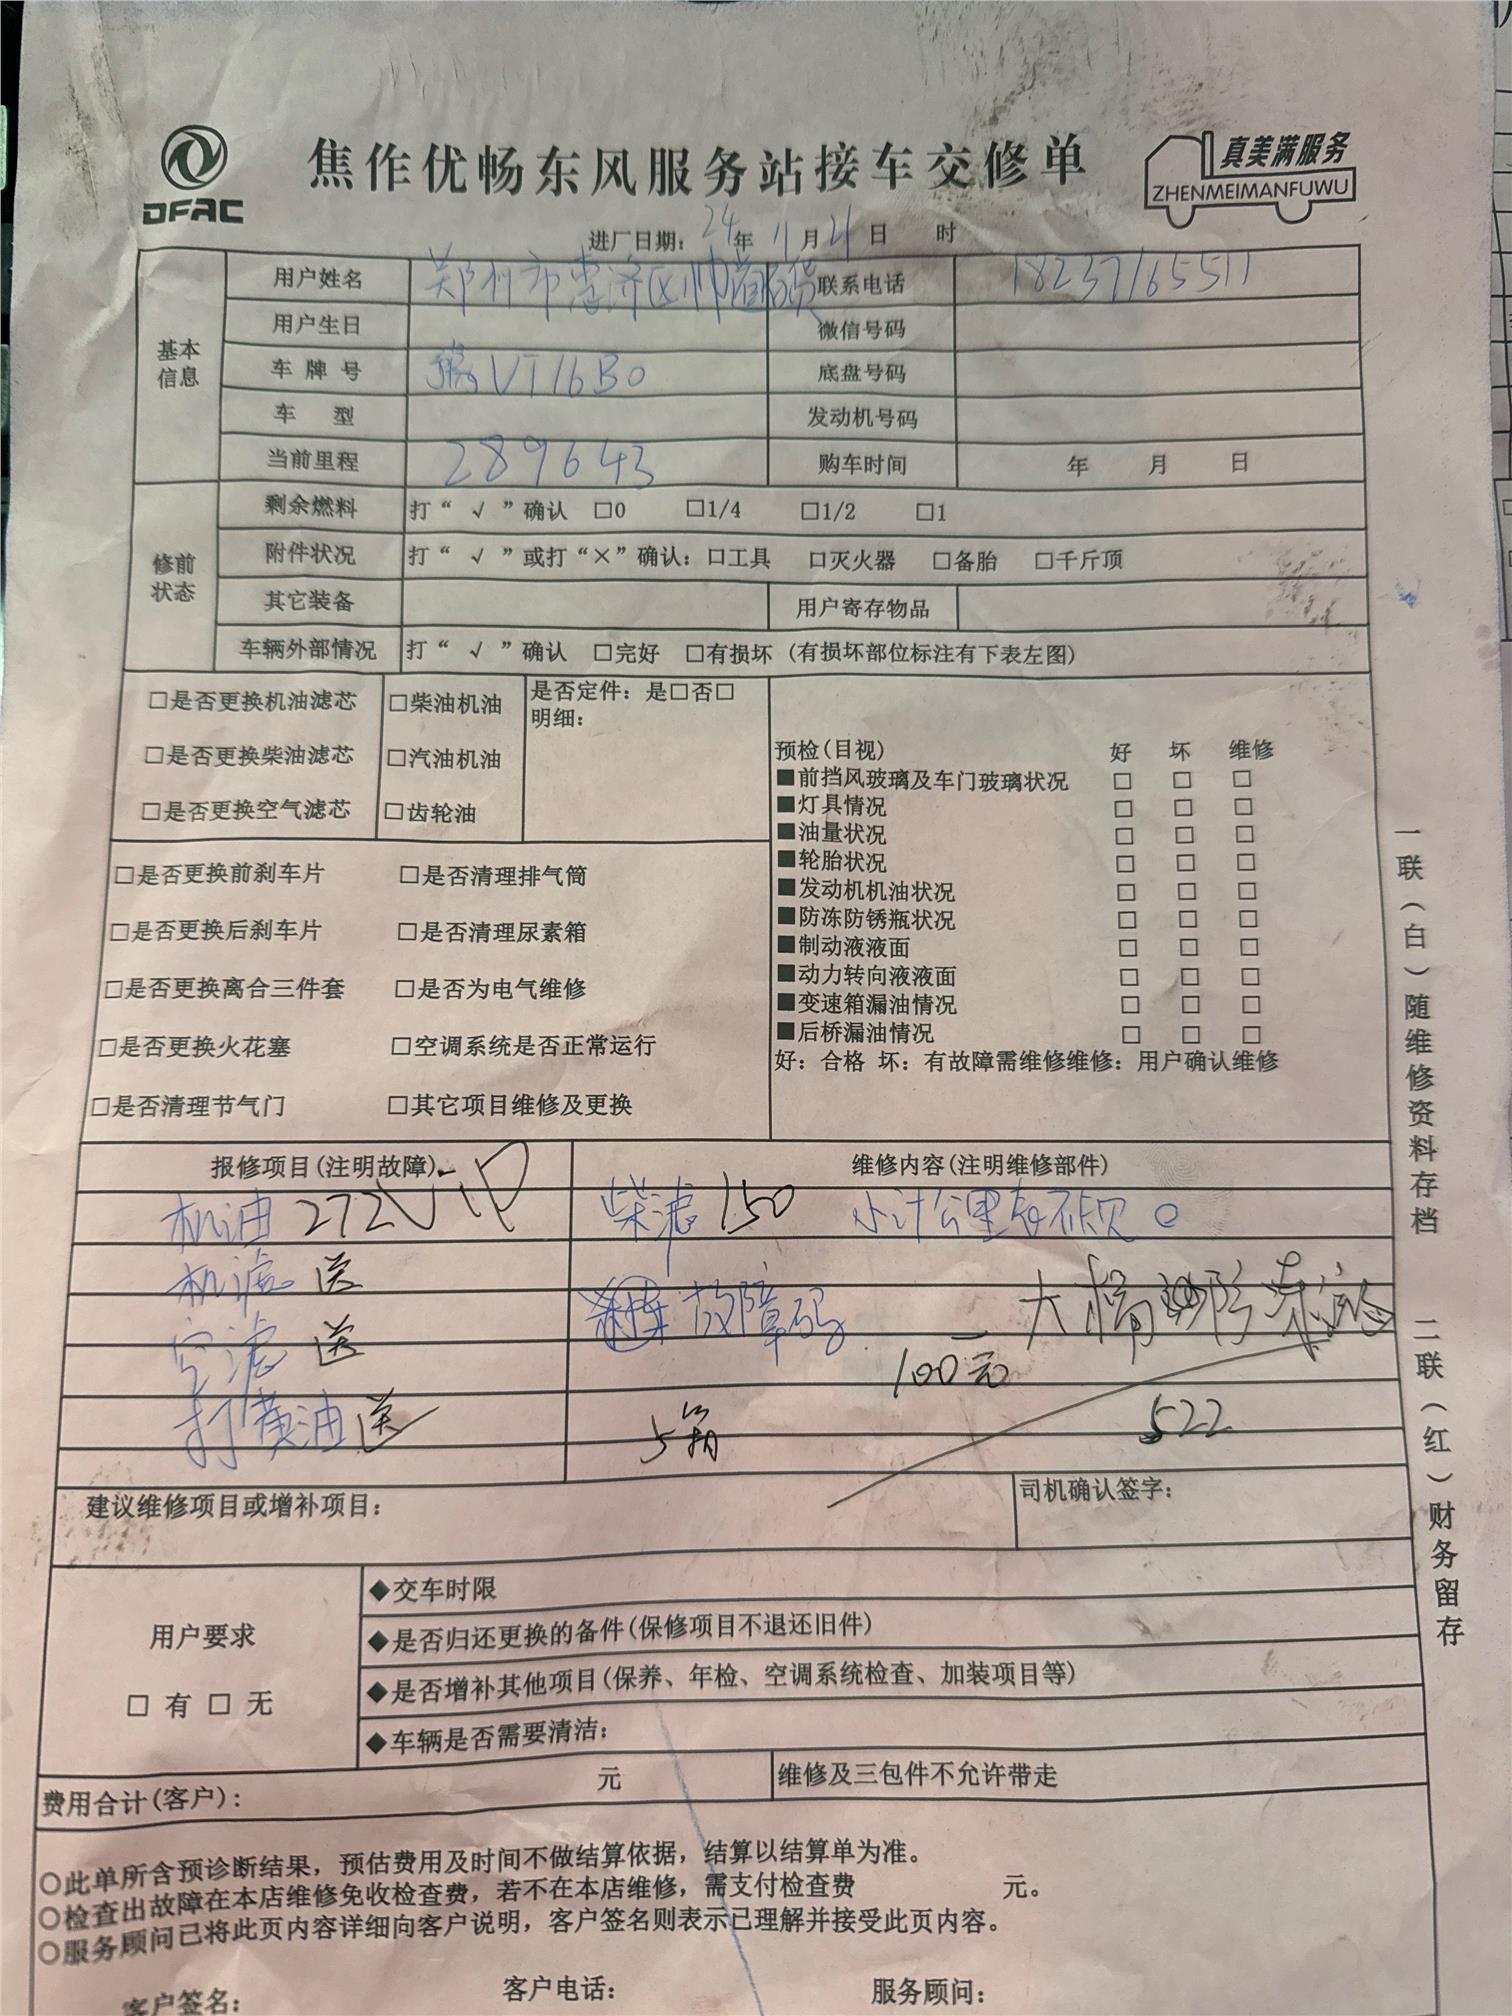 DFAC
焦作优畅东风服务站接车交修单
真美满服务
ZHENMEIMANFUWU
进厂日期: 24年 11月 21日 时
基本信息
用户姓名 郑州市惠济区帅 联系电话 18237165511
用户生日 微信号码
车牌号 豫VT16B0 底盘号码
车型 发动机号码
当前里程 289643 购车时间 年 月 日
修前状态
剩余燃料 打“√”确认 □0 □1/4 □1/2 □1
附件状况 打“√”或打“×”确认: □工具 □灭火器 □备胎 □千斤顶
其它装备 用户寄存物品
车辆外部情况 打“√”确认 □完好 □有损坏 (有损坏部位标注有下表左图)
□是否更换机油滤芯 □柴油机油 是否定件: 是□否□
明细:
□是否更换柴油滤芯 □汽油机油
□是否更换空气滤芯 □齿轮油
□是否更换前刹车片 □是否清理排气筒
□是否更换后刹车片 □是否清理尿素箱
□是否更换离合三件套 □是否为电气维修
□是否更换火花塞 □空调系统是否正常运行
□是否清理节气门 □其它项目维修及更换
预检(目视) 好 坏 维修
■前挡风玻璃及车门玻璃状况 □ □ □
■灯具情况 □ □ □
■油量状况 □ □ □
■轮胎状况 □ □ □
■发动机机油状况 □ □ □
■防冻防锈瓶状况 □ □ □
■制动液液面 □ □ □
■动力转向液液面 □ □ □
■变速箱漏油情况 □ □ □
■后桥漏油情况 □ □ □
好: 合格 坏: 有故障需维修维修: 用户确认维修
报修项目(注明故障) 维修内容(注明维修部件)
机油 272 柴滤 150 小计公里
机滤 送
故障码 大桥
空滤 送
100元
打黄油 送 5箱 522
建议维修项目或增补项目: 司机确认签字:
用户要求
□ 有 □ 无
◆交车时限
◆是否归还更换的备件(保修项目不退还旧件)
◆是否增补其他项目(保养、年检、空调系统检查、加装项目等)
◆车辆是否需要清洁:
费用合计(客户): 元 维修及三包件不允许带走
○此单所含预诊断结果, 预估费用及时间不做结算依据, 结算以结算单为准。
○检查出故障在本店维修免收检查费, 若不在本店维修, 需支付检查费 元。
○服务顾问已将此页内容详细向客户说明, 客户签名则表示已理解并接受此页内容。
客户签名: 客户电话: 服务顾问:
一联(白)随维修资料存档 二联(红)财务留存